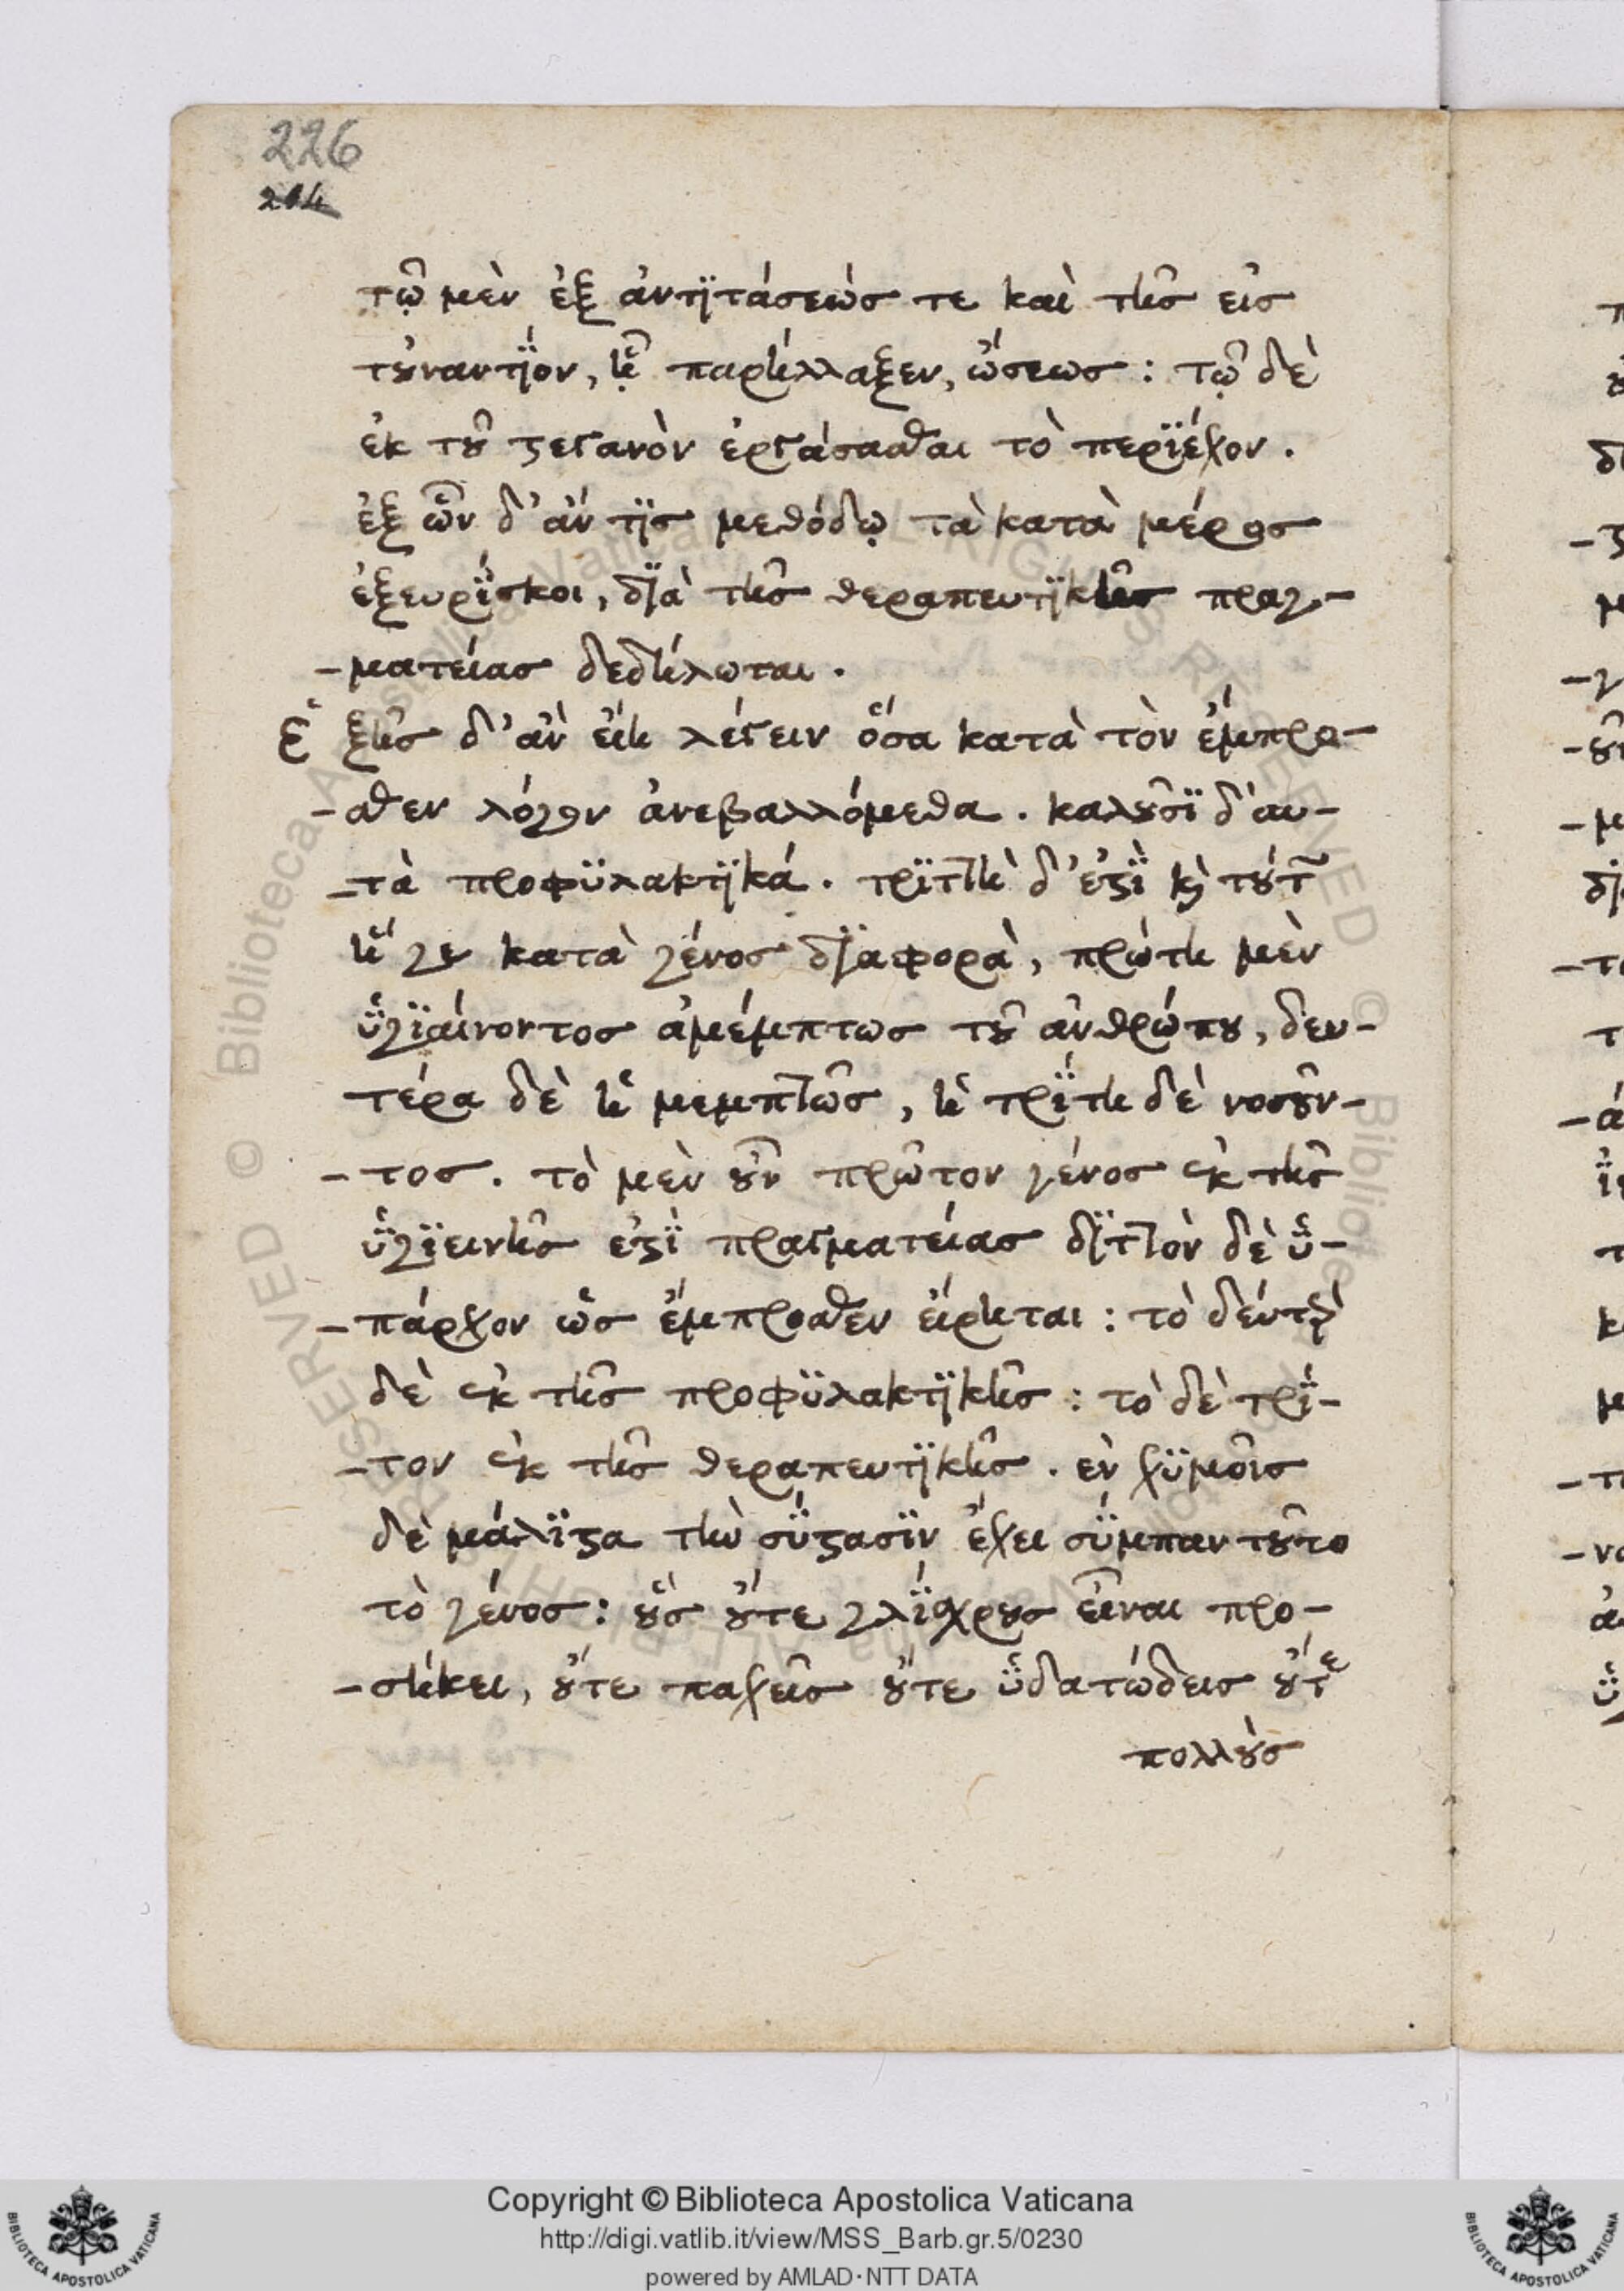 226
204
τῷ μὲν ἐξ ἀντϊτάσεώσ τε καὶ τῆσ εἰσ
τοὐναντΐον, ᾗ παρήλλαξεν, ὤσεωσ : τῷ δὲ
ἐκ τοῦ στεγανὸν ἐργάσασθαι τὸ περϊέχον .
ἐξ ὧν δ' ἄν τϊσ μεθόδῳ τὰ κατὰ μέροσ
ἐξευρΐσκοι, δϊὰ τῆσ θεραπευτϊκῆσ πραγ-
-ματείασ δεδήλωται .
Ἑξῆσ δ' ἂν εἴη λέγειν ὅσα κατὰ τὸν ἔμπρο-
-σθεν λόγον ἀνεβαλλόμεθα . καλοῦσϊ δ' αυ-
-τὰ προφϋλακτϊκά . τρϊττὴ δ' ἐστῒ κὰν τούτοισ
ἥ γε κατὰ γένοσ δϊαφορὰ, πρώτη μὲν
ὑγϊαίνοντοσ ἀμέμπτωσ τοῦ ἀνθρώπου, δευ-
τέρα δὲ ἡ μεμπτῶσ, ἡ τρΐτη δὲ νοσοῦν-
-τοσ . τὸ μὲν οὖν πρῶτον γένοσ ἐκ τῆσ
ὑγϊεινῆσ ἐστῒ πραγματείασ δϊττὸν δὲ ὑ-
-πάρχον ὡσ ἔμπροσθεν εἴρηται : τὸ δεύτερον
δὲ ἐκ τῆσ προφϋλακτϊκῆσ : τὸ δὲ τρΐ-
-τον ἐκ τῆσ θεραπευτϊκῆσ . ἐν χϋμοῖσ
δὲ μάλϊστα τὴν σΰστασϊν ἔχει σΰμπαν τοῦτο
τὸ γένοσ : οὓσ οὔτε γλΐσχρουσ εἶναι προ-
-σήκει, οὔτε παχεῖσ οὔτε ὑδατώδεισ οὔτε
πολλοὺσ
Copyright © Biblioteca Apostolica Vaticana
http://digi.vatlib.it/view/MSS_Barb.gr.5/0230
powered by AMLAD·NTT DATA